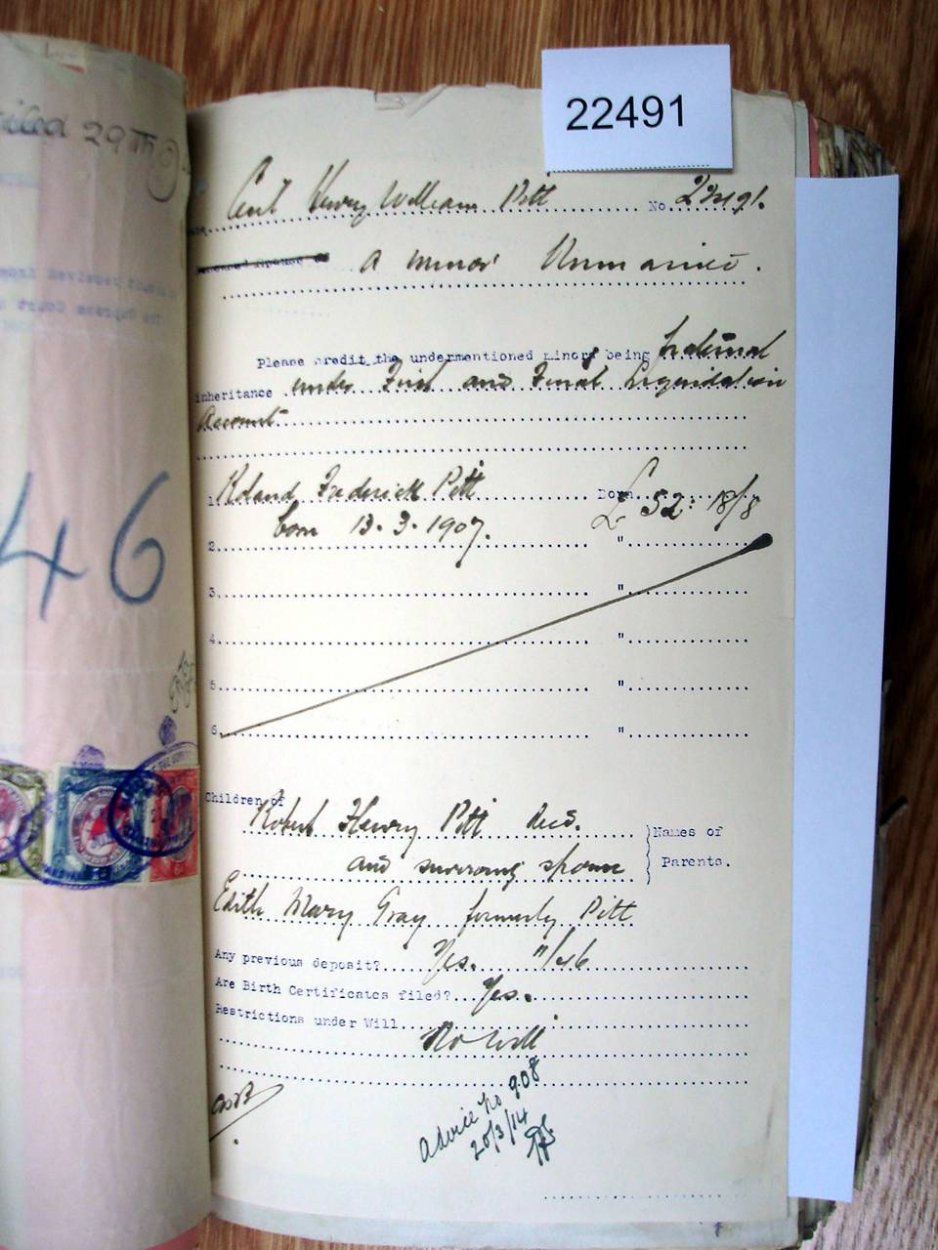 22491
29
46
Cecil Henry William Pitt No. 22491.
a minor Unmarried.
Please credit the undermentioned minors being
inheritance under First and Final Liquidation
Account
1 Roland Frederick Pitt Born £52: 18/8
born 13.3.1907.
2 "
3 "
4 "
5 "
6 "
Children of
Robert Henry Pitt decd. Names of
and surviving spouse Parents.
Edith Mary Gray formerly Pitt
Any previous deposit? Yes. /46
Are Birth Certificates filed? Yes.
Restrictions under Will
No Will
Advice No 908
20/3/14